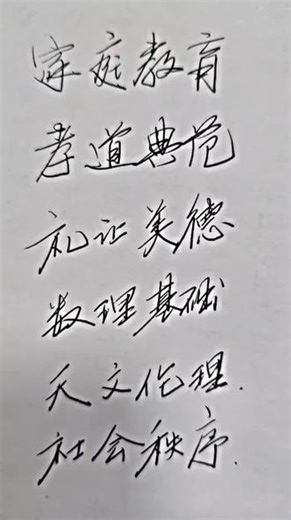 家庭教育
孝道典范
礼让美德
数理基础
天文伦理.
社会秩序.